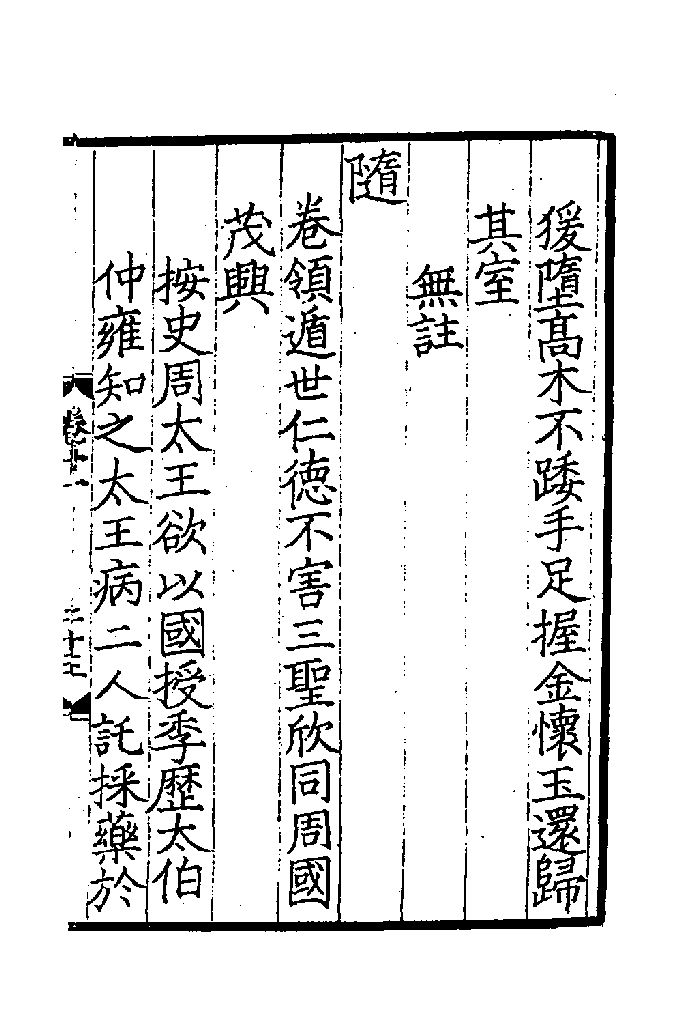 猨墮髙木不踒手足握金懷玉還歸
其室
無註
隨
卷領遁世仁德不害三聖欣同周國
茂興
按史周太王欲以國授季歷太伯
仲雍知之太王病二人託採藥於
卷十一
二十五